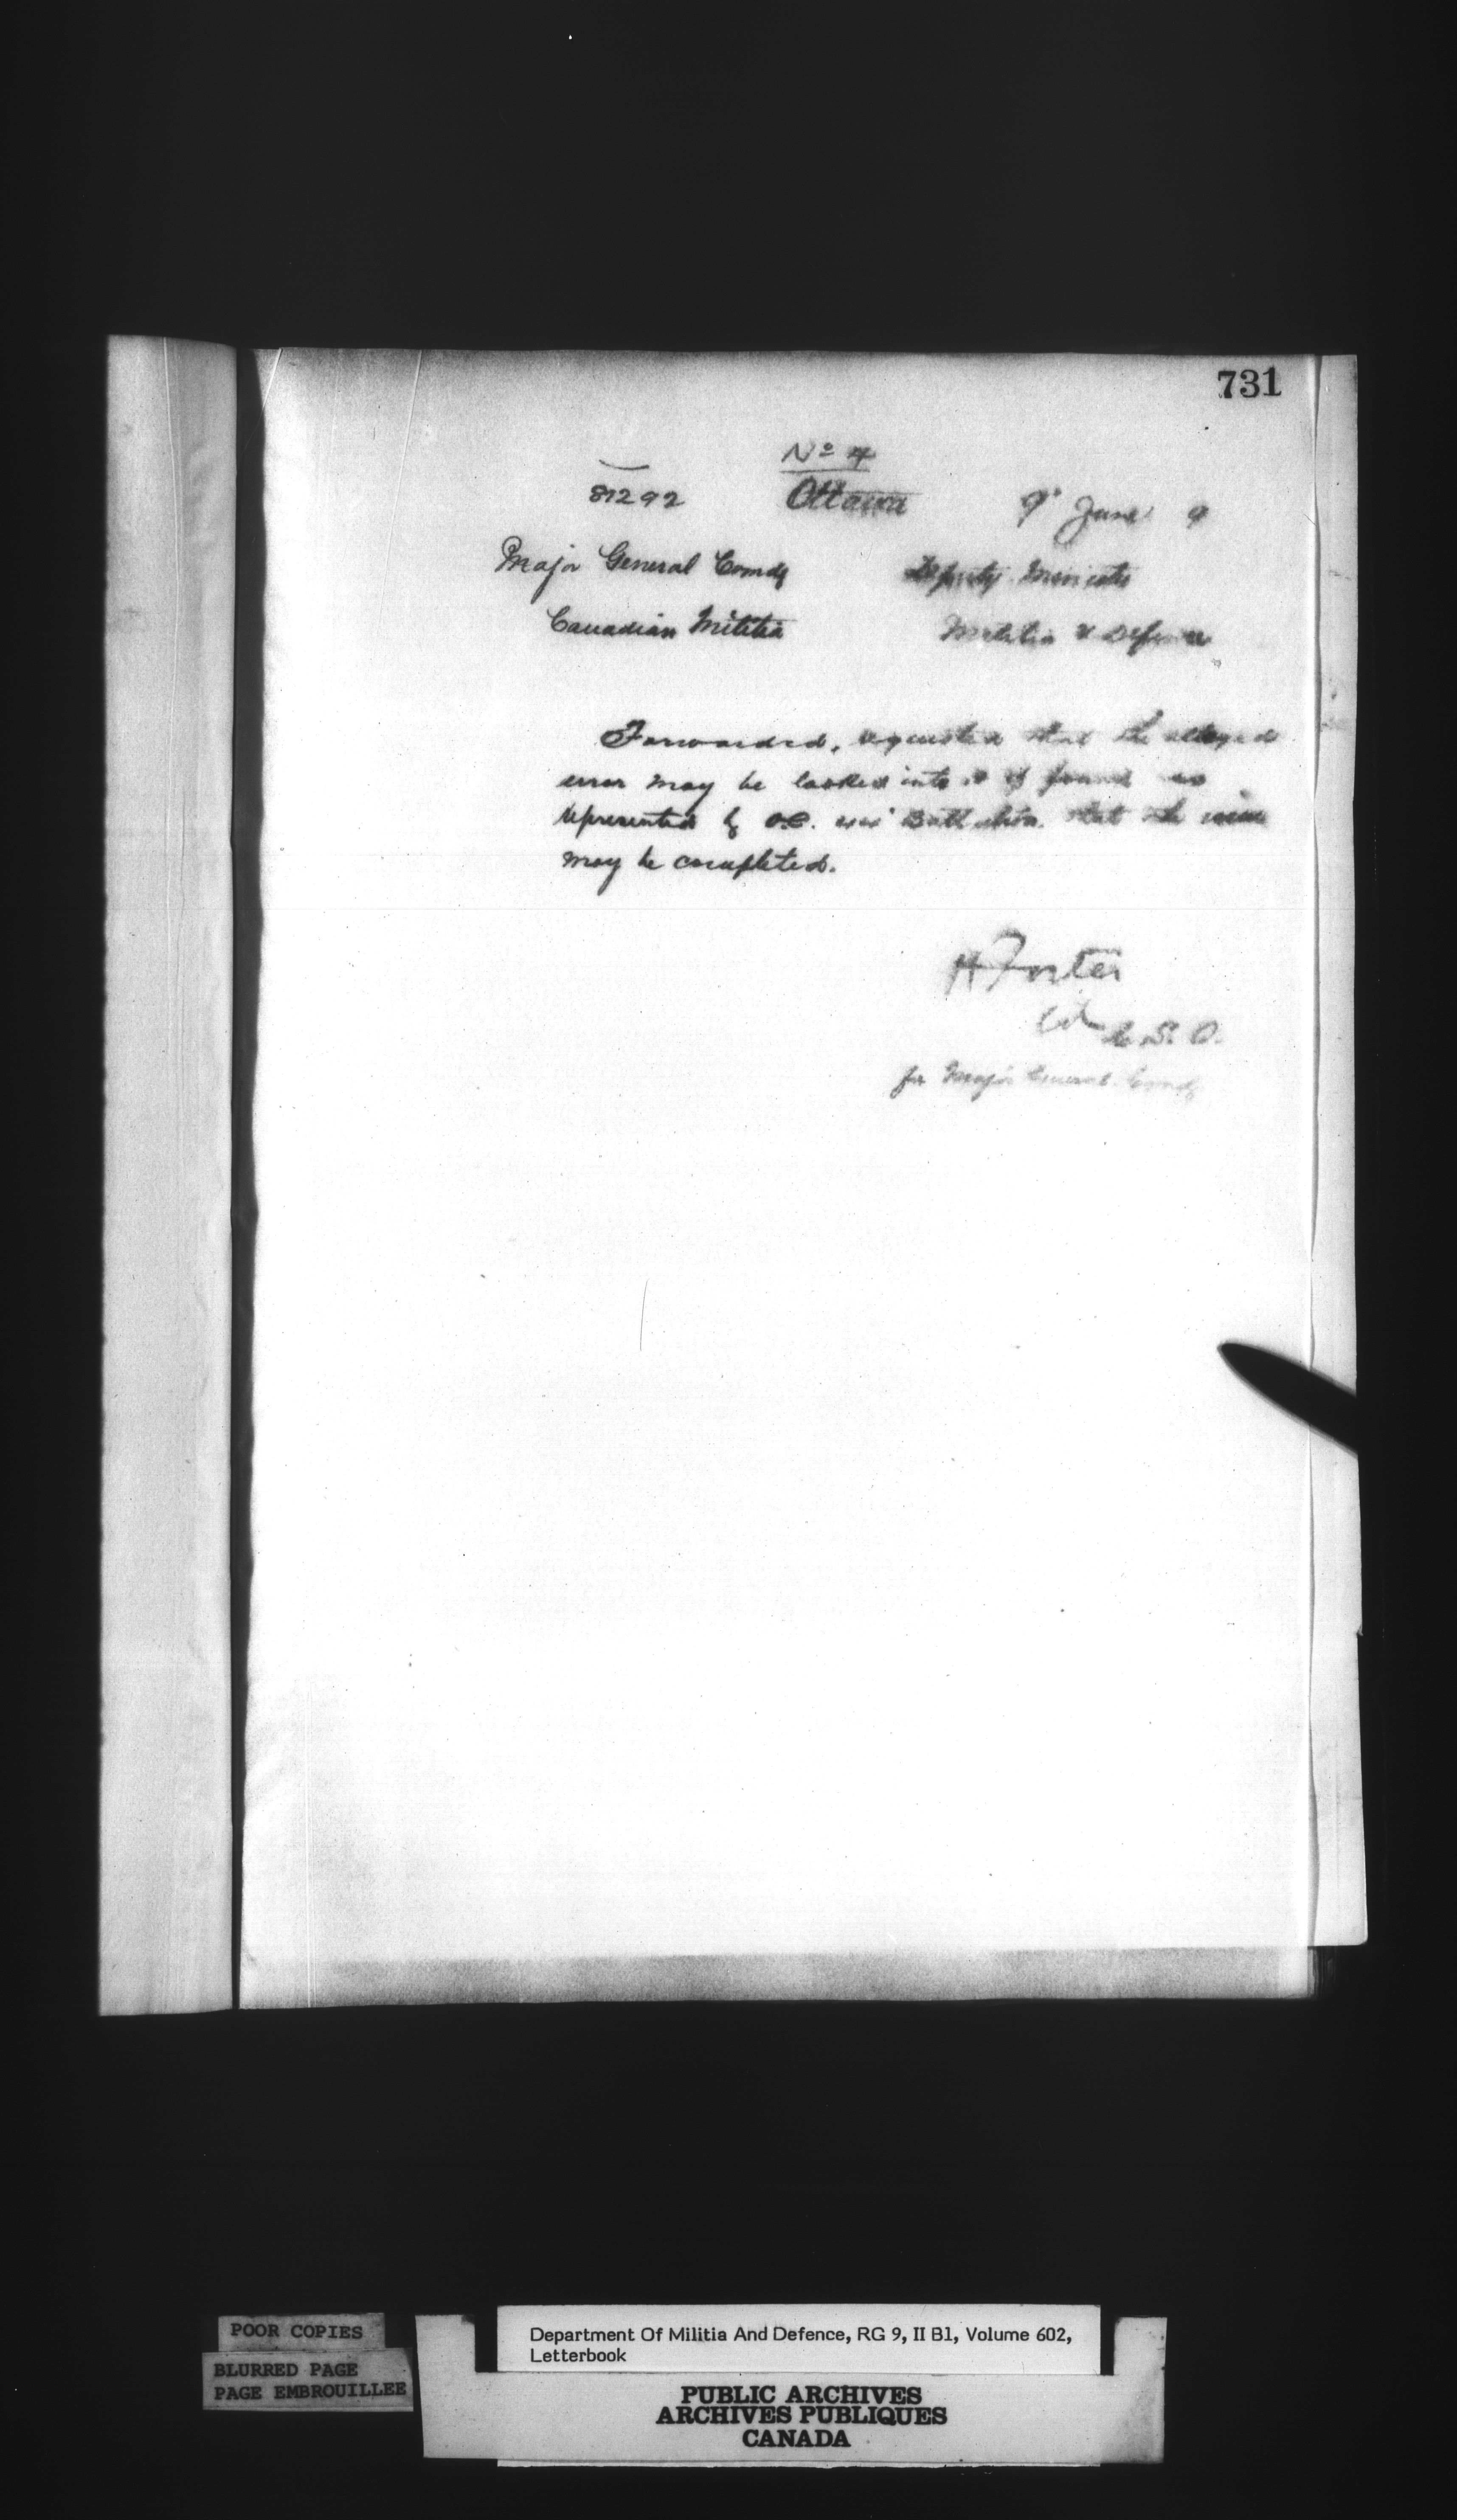 731
No 4
81292 Ottawa 9th June 9
Major General Comdg Deputy Minister
Canadian Militia Militia & Defence
Forwarded, requested that the alleged
error may be looked into & if found as
represented by O.C. Battalion that the issue
may be completed.
H Foster
Col C.S.O.
for Major General Comdg
POOR COPIES
BLURRED PAGE
PAGE EMBROUILLEE
Department Of Militia And Defence, RG 9, II B1, Volume 602,
Letterbook
PUBLIC ARCHIVES
ARCHIVES PUBLIQUES
CANADA